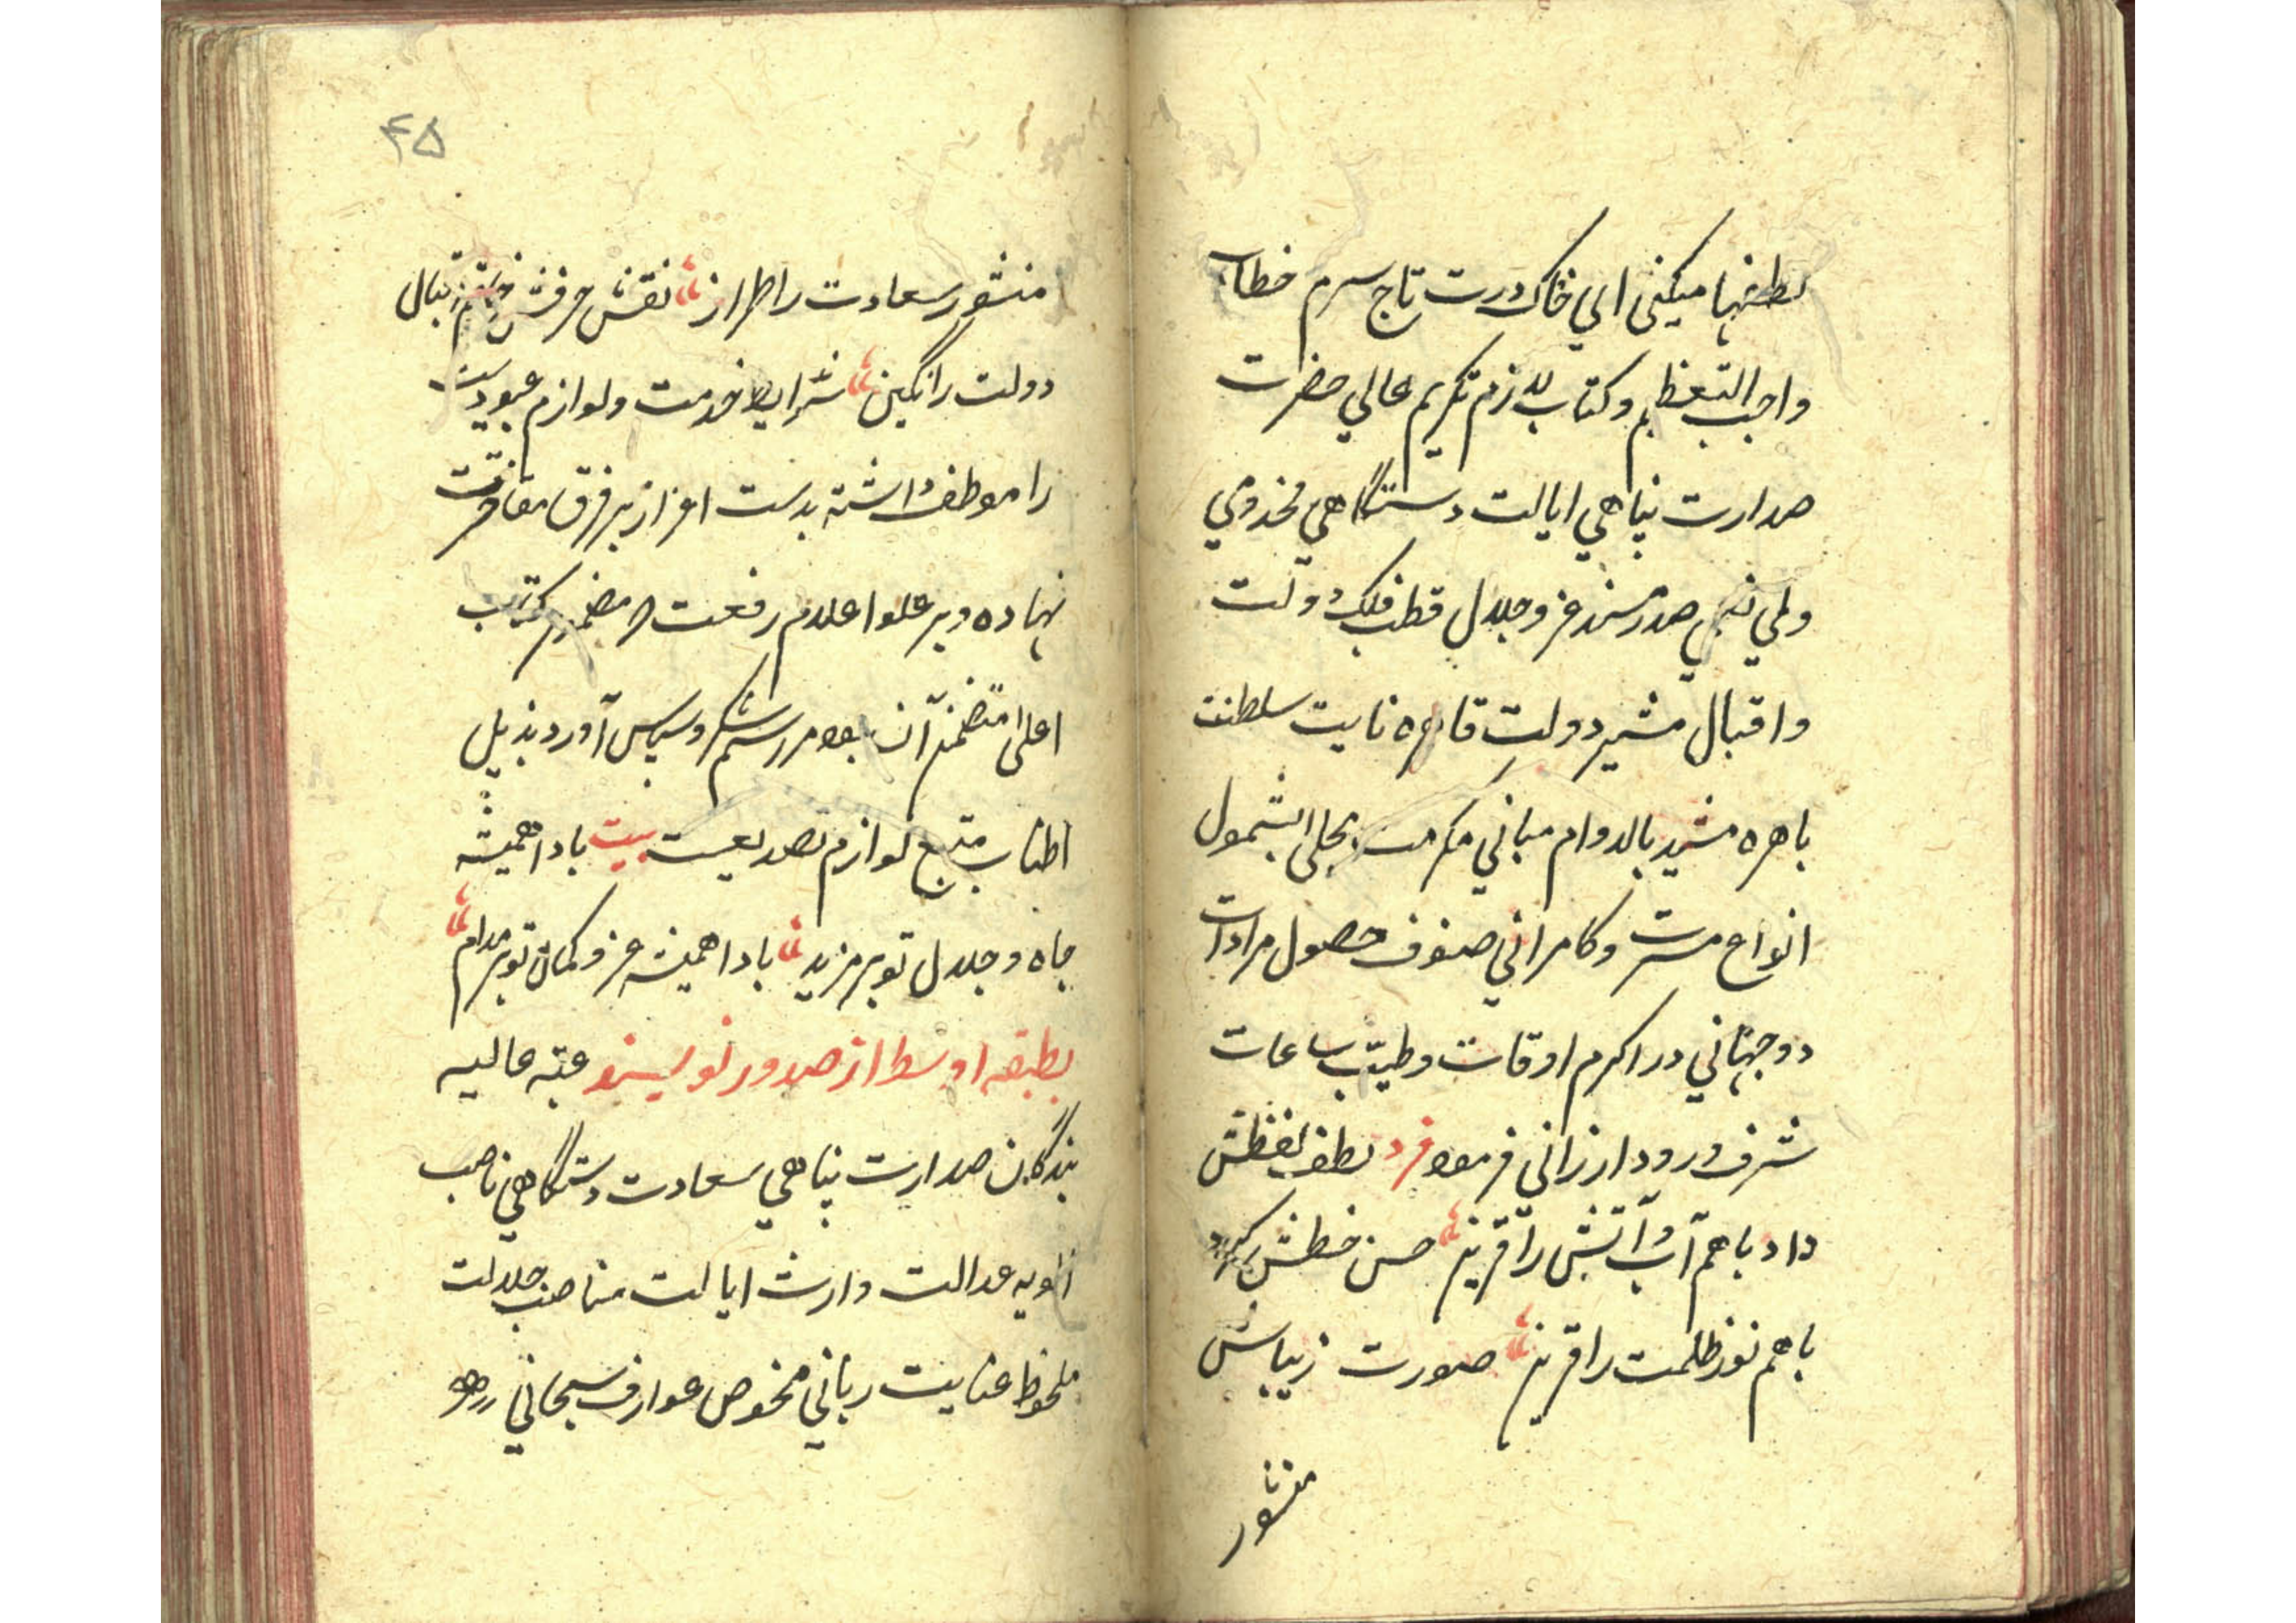 لطفها میکنی ای خاک درت تاج سرم خطاب
واجب التعظیم و کتاب لازم تکریم عالي حضرت
صدارت پناهي ایالت دستگاهي مخدومي
ولي نعمي صدر مسند عز و جلال قطب فلک دولت
و اقبال مشیر دولت قاهره نایب سلطنت
باهره مشید بالدوام مباني مکرمت بجلی الشمول
انواع مسرت و کامراني صنوف حصول مرادات
دوجهاني در اکرم اوقات و طیب ساعات
شرف ورود ارزاني فرمود فرد لطف لفظش
داد باهم آب و آتش را قرین حسن خطش کرد
باهم نور ظلمت را قرین صورت زیباش
منشور
۴۵
منشور سعادت را طراز نقش حرفش خاتم اقبال
دولت را نگین شرایط خدمت و لوازم عبودیت
را موطف داشته بدست اعزاز بر فرق مفاخرت
نهاده و بر علو اعلام رفعت مضمون کتب
اعلی متضمن آن بود مراسم شکر و سپاس آورد بذیل
اطناب متبع لوازم تصدیعست بیت بادا همیشه
جاه و جلال تو بر مزید بادا همیشه عز و کمال تو بر مدام
بطبقه اوسط از صدور نویسند عتبه عالیه
بندگان صدارت پناهي سعادت دستگاهي ناصب
الویه عدالت وارث ایالت مناصب جلالت
ملحوظ عنایت رباني مخصوص عوارف سبحاني